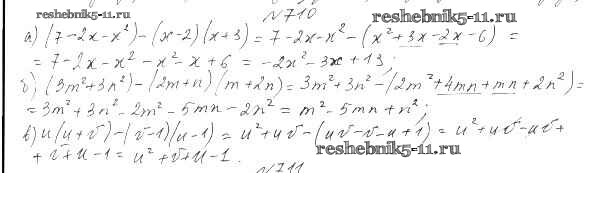 №710
reshebnik5-11.ru reshebnik5-11.ru
а) (7-2x-x²)-(x-2)(x+3)=7-2x-x²-(x²+3x-2x-6) =
= 7-2x-x²-x²-x+6 = -2x²-3x+13;
б) (3m²+3n²)-(2m+n)(m+2n)=3m²+3n²-(2m²+4mn+mn+2n²)=
= 3m²+3n²-2m²-5mn-2n² = m²-5mn+n²;
в) u(u+v)-(v-1)(u-1) = u²+uv-(uv-v-u+1) = u²+uv-uv+
+ v+u-1 = u²+v+u-1.
reshebnik5-11.ru
№711